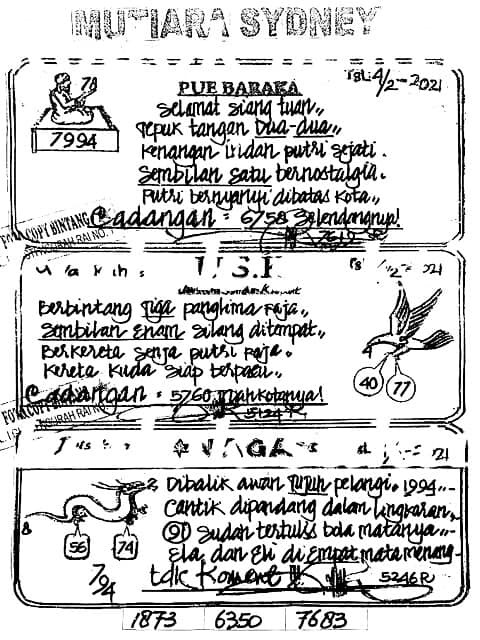 MUTIARA SYDNEY
PUE BARAKA
Tgl: 4/2-2021
7994
Selamat siang tuan,,
Tepuk tangan Dua-dua,,
Kenangan iridan putri sejati.
Sembilan satu bernostalgia.
Putri bernyanyi dibatas kota,,
Cadangan = 6758 Selendangnya!
7610 SR
FOTO COPY BINTANG
SURAH RAI NO.
Berbintang Tiga panglima raja,,
Sembilan Enam silang ditempat,,
Berkereta senja putri raja.
Kereta kuda siap terpacu,,
40 77
Cadangan = 5760 mahkotanya!
5124 R
FOTO COPY
SURAH RAI NO.
NAGA
Dibalik awan Tujuh pelangi. 1994,,-
Cantik dipandang dalam lingkaran,,
91 sudah tertulis bola matanya,,-
Ela dan Eli di Empat mata menang-
8
56 74
794
tdk Koment !!
5246 R
1873 6350 7683